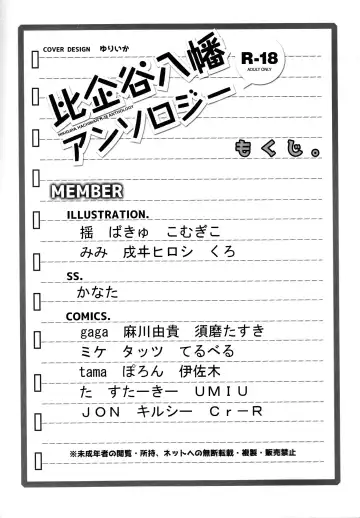 COVER DESIGN ゆりいか
比企谷八幡
アンソロジー
HIKIGAYA HACHIMAN R-18 ANTHOLOGY
R-18
ADULT ONLY
もくじ。
MEMBER
ILLUSTRATION.
揺 ばきゅ こむぎこ
みみ 戌井ヒロシ くろ
SS.
かなた
COMICS.
gaga 麻川由貴 須磨たすき
ミケ タッツ てるべる
tama ぽろん 伊佐木
た すたーきー ＵＭＩＵ
ＪＯＮ キルシー Ｃｒ−Ｒ
※未成年者の閲覧・所持、ネットへの無断転載・複製・販売禁止